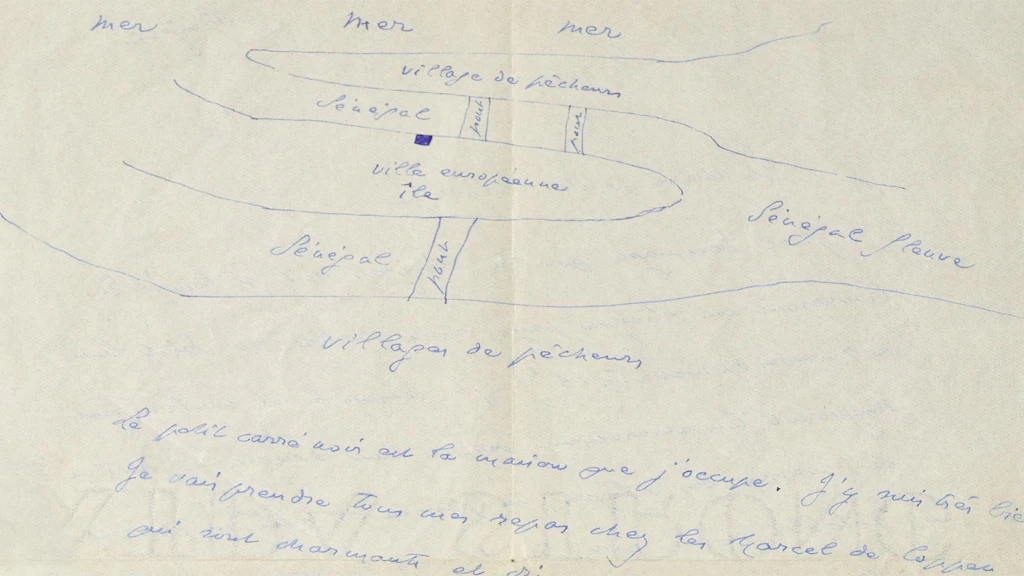 mer mer mer
village de pêcheurs
Sénégal pont pont
ville européenne
île
Sénégal pont Sénégal fleuve
villages de pêcheurs
Le petit carré noir est la maison que j'occupe. J'y suis très bie
Je vais prendre tous mes repas chez les Marcel de Coppen
qui sont charmants et